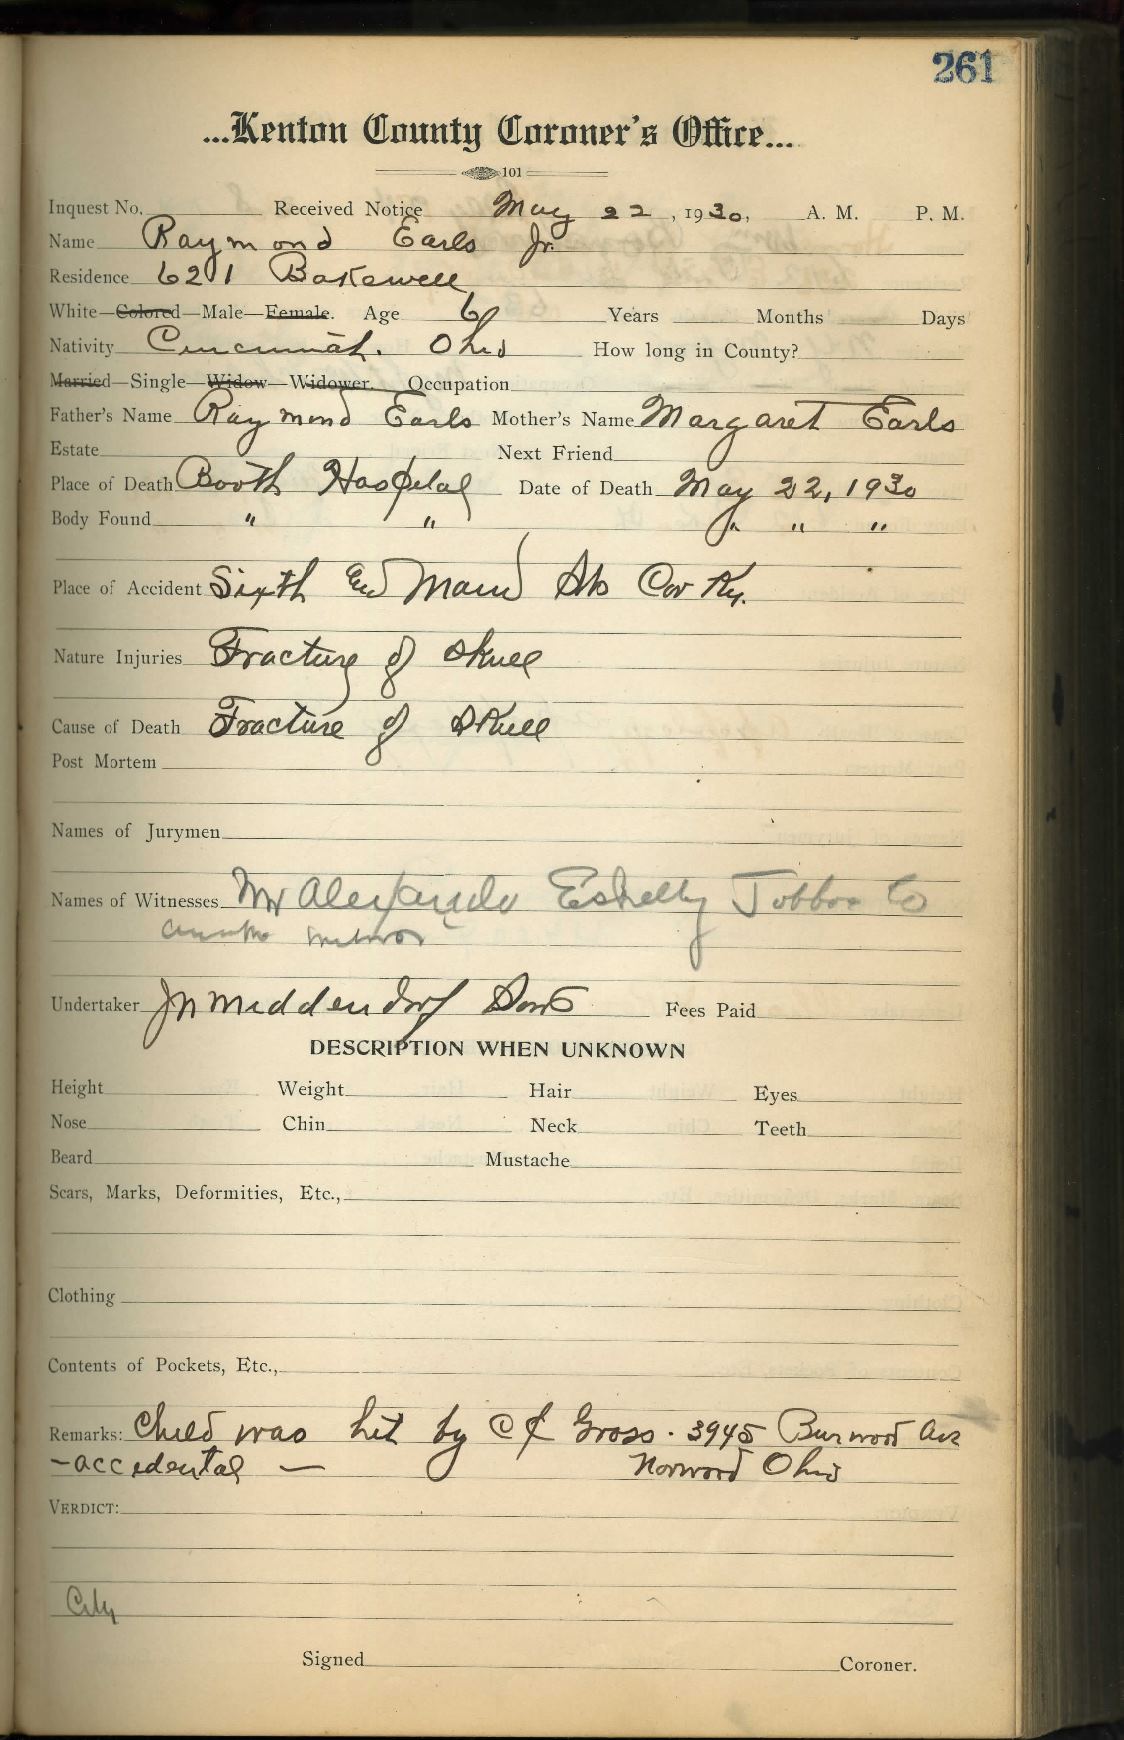 261
...Kenton County Coroner's Office...
101
Inquest No. Received Notice May 22, 1930, A. M. P. M.
Name Raymond Earls Jr.
Residence 621 Bakewell
White—Colored—Male—Female. Age 6 Years Months Days
Nativity Cincinnati. Ohio How long in County?
Married—Single—Widow—Widower. Occupation
Father's Name Raymond Earls Mother's Name Margaret Earls
Estate Next Friend
Place of Death Booth Hospital Date of Death May 22, 1930
Body Found " " " " "
Place of Accident Sixth and Main Sts Cov Ky.
Nature Injuries Fracture of Skull
Cause of Death Fracture of Skull
Post Mortem
Names of Jurymen
Names of Witnesses Mr Alexander Co
Undertaker Middendorf Sons Fees Paid
DESCRIPTION WHEN UNKNOWN
Height Weight Hair Eyes
Nose Chin Neck Teeth
Beard Mustache
Scars, Marks, Deformities, Etc.,
Clothing
Contents of Pockets, Etc.,
Remarks: Child was hit by Gross. 3945 Burwood Ave
-accedental — Norwood Ohio
VERDICT:
City
Signed Coroner.